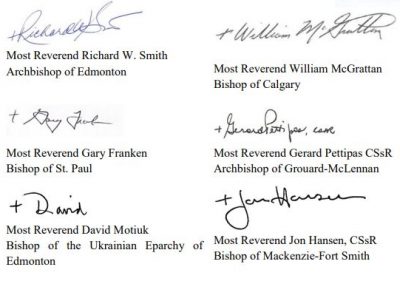 + Richard W. Smith
Most Reverend Richard W. Smith
Archbishop of Edmonton
+ William McGrattan
Most Reverend William McGrattan
Bishop of Calgary
+ Gary Franken
Most Reverend Gary Franken
Bishop of St. Paul
+ Gerard Pettipas, CSsR
Most Reverend Gerard Pettipas CSsR
Archbishop of Grouard-McLennan
+ David
Most Reverend David Motiuk
Bishop of the Ukrainian Eparchy of
Edmonton
+ Jon Hansen
Most Reverend Jon Hansen, CSsR
Bishop of Mackenzie-Fort Smith